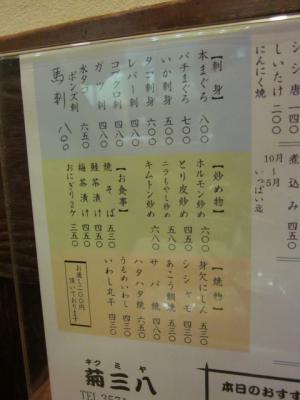 【刺身】
本まぐろ 八〇〇
バチまぐろ 七〇〇
いか刺身 五五〇
タコ刺身 六〇〇
レバー刺 四八〇
コブクロ刺 四八〇
ガツ刺 四八〇
水タコポンズ刺 六五〇
馬刺 八〇〇
【炒め物】
ホルモン炒め 六〇〇
とり皮炒め 四五〇
ニラもやし炒め 五八〇
キムトン炒め 六八〇
【お食事】
焼そば 五三〇
鮭茶漬け 四五〇
梅茶漬け 四五〇
おにぎり2ケ 三五〇
【焼物】
身欠にしん 五三〇
シシャモ 四三〇
あこう鯛焼 五三〇
サバ焼 四八〇
ハタハタ焼 六五〇
うるめいわし 四三〇
いわし丸干 四三〇
お通し二〇〇円
頂いております
シシ唐
しいたけ 二〇〇
にんにく焼
煮込み 四五〇
10月〜5月いっぱい迄
キクミヤ
菊三八
TEL 357
本日のおすす